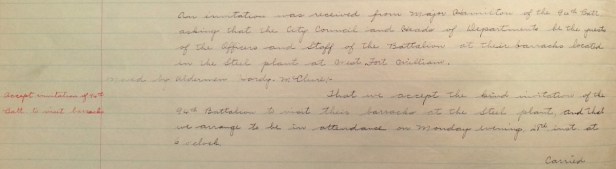 An invitation was received from Major Hamilton of the 94th Batt.
asking that the City Council and Heads of Departments be the guests
of the Officers and Staff of the Battalion at their barracks located
in the Steel plant at West Fort William.
Moved by Alderman McClure
Accept invitation of 94th
Batt to visit barracks
That we accept the kind invitation of the
94th Battalion to visit their barracks at the Steel plant, and that
we arrange to be in attendance on Monday evening 28th inst at
o'clock
Carried